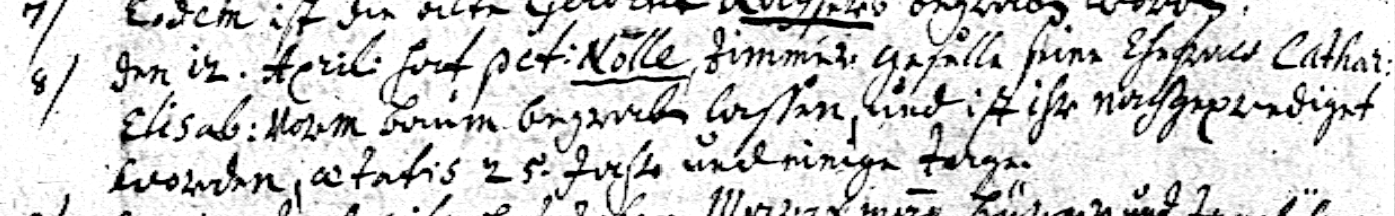 7/ Eodem ist die alte begraben worden.
8/ den 12. April: hat Pet: Nölle, Zimmer geselle seine Ehefrau Cathar:
Elisab: Vorm baum begraben lassen, und ist ihr nachgeprediget
worden, ætatis 25. Jahr und einige Tage.